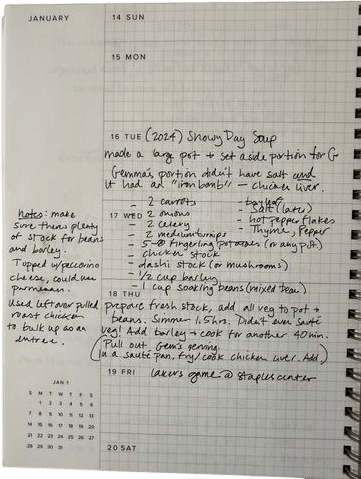 JANUARY
14 SUN
15 MON
16 TUE (2024) Snowy Day Soup
made a large pot + set aside portion for G
Gemma's portion didn't have salt and
it had an "iron bomb" — chicken liver.
- 2 carrots
- bay leaf
17 WED - 2 onions
- Salt (later)
- 2 celery
- hot pepper flakes
- 2 medium turnips
- Thyme, Pepper
- 5-8 fingerling potatoes (or any pot.)
- chicken stock
- dashi stock (or mushrooms)
- 1/2 cup barley
- 1 cup soaking beans (mixed bean)
Notes: make
sure there's plenty
of stock for beans
and barley.
Topped w/peccorino
cheese, could use
parmesan.
Used leftover pulled
roast chicken
to bulk up as an
entree.
18 THU
prepare fresh stock, add all veg to pot +
beans. Simmer 1.5 hrs. Didn't even sauté
veg! Add barley + cook for another 40 min.
(Pull out Gem's serving.
In a sauté pan, fry/cook chicken liver. Add)
19 FRI lakers game @ staples center
20 SAT
JAN 1
S M T W T F S
1 2 3 4 5 6
7 8 9 10 11 12 13
14 15 16 17 18 19 20
21 22 23 24 25 26 27
28 29 30 31